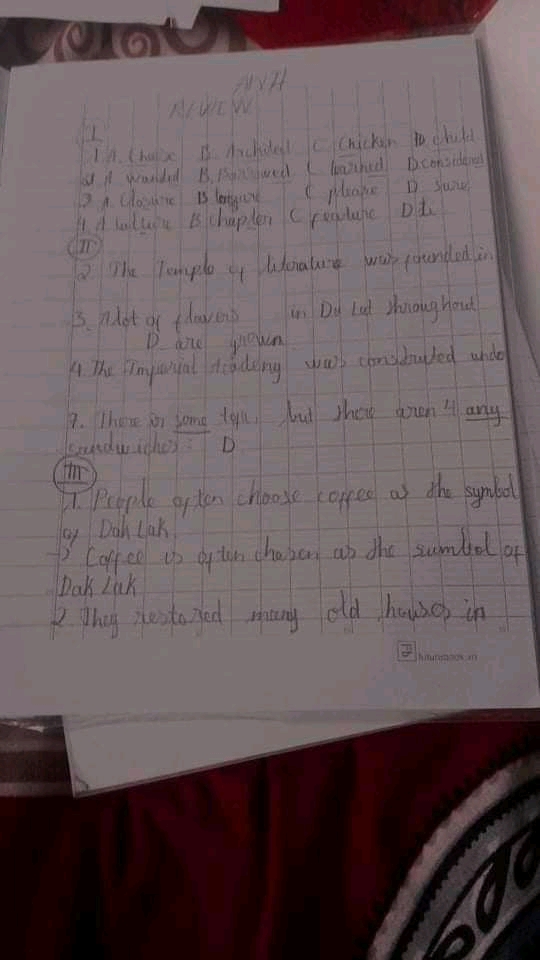 ANH
REVIEW
I
1 A. Choise B. Architect C Chicken D child
2 A wounded B. Borrowed C learned D. considered
3 A. Closure B leisure C pleasure D sure
4. A culture B Chapter C feature D
II
2 The Temple of literature was founded in
3. A lot of flowers in Da Lat throughout
D are grown
4. The Imperial Academy was constructed unde
7. There is some but there aren't any
sandwiches: D
III
1. People often choose coffee as the symbol
of Dak Lak.
Coffee is often chosen as the sumbol of
Dak Lak
2. They restored many old houses in